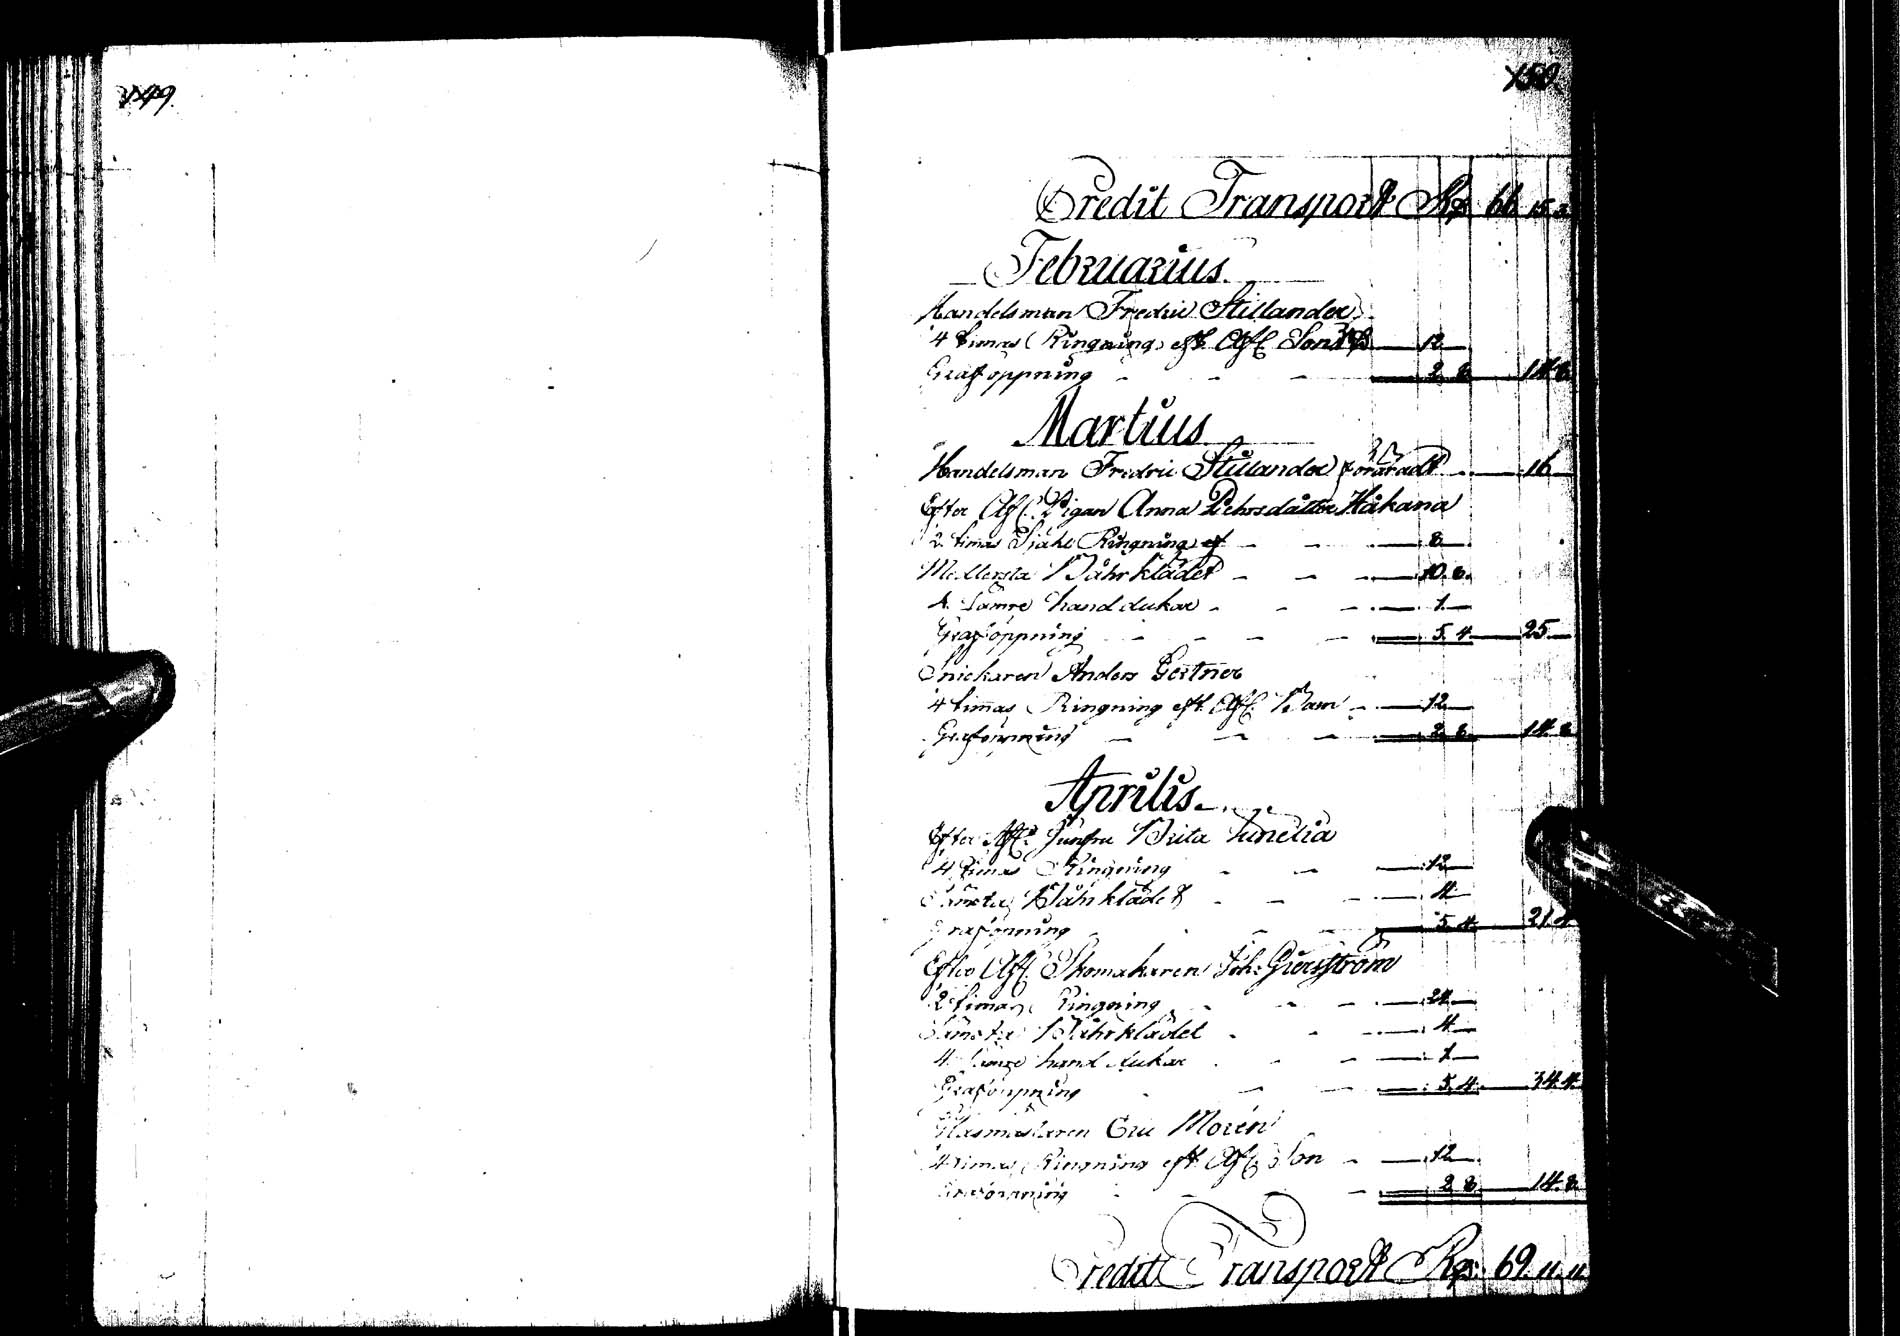 149.
150.
Credit Transport Rd 66 15 3
Februarius.
Handelsman Fredric Stillander
4 timas Ringning eft. Afl. Son 12
Graföppning 2 8 14 8
Martius
Handelsman Fredric Stillander föräradt 16
Efter Afl. Pigan Anna Pehrsdåtter Håkana
2 timas Själe Ringning 8
Medlersta Båhrklädet 10 8
4 Sämre handdukar 1
Graföppning 5 4 25
Snickaren Anders Gertner
4 timas Ringning eft. Afl. Barn 12
Graföppning 2 8 14 8
Aprilis
Efter Afl. Junfru Brita Lunelia
4 timas Ringning 12
Sämsta Båhrklädet 4
Graföppning 5 4 21 4
Efter Afl. Skomakaren Joh:
2 timas Ringning 24
Sämsta Båhrklädet 4
4 Sämre handdukar 1
Graföppning 5 4 34 4
Glasmästaren Eric Morén
4 timas Ringning eft. Afl. Son 12
Graföppning 2 8 14 8
Credit Transport Rd 69 11 11